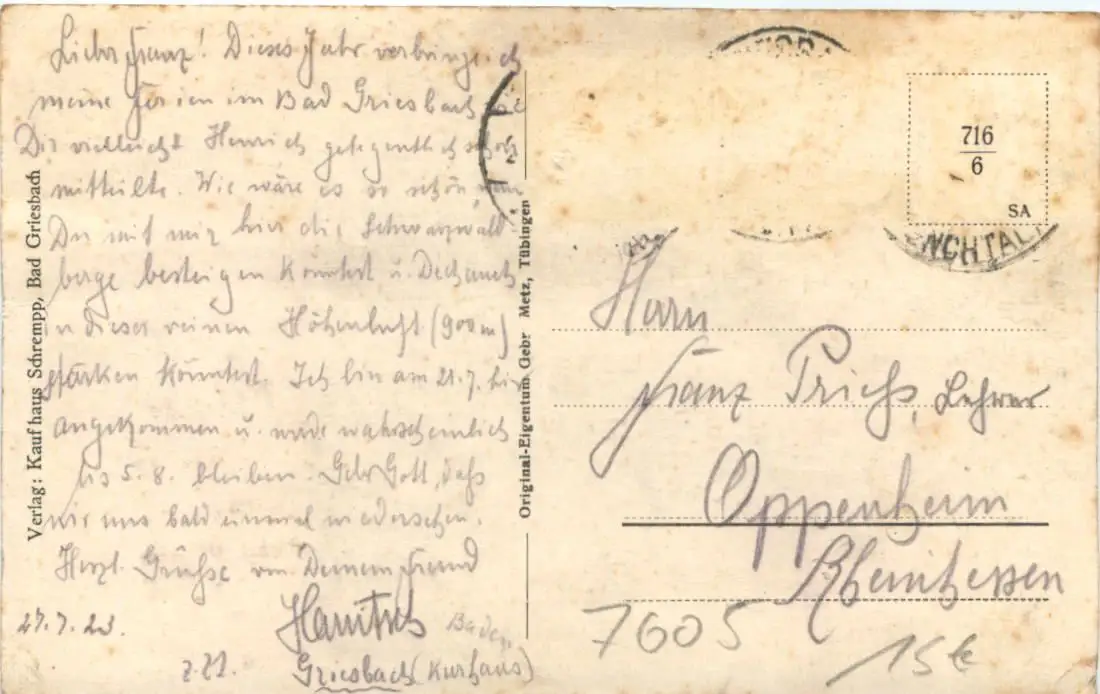 Lieber Franz! Dieses Jahr verbringe ich
meine Ferien im Bad Griesbach, wie
Dir vielleicht Heinrich gelegentlich schon
mitteilte. Wie wäre es so schön, wenn
Du mit mir hier die Schwarzwald
berge besteigen könntest u. Dich auch
in dieser reinen Höhenluft (900m)
stärken könntest. Ich bin am 21.7. hier
angekommen u. werde wahrscheinlich
bis 5. 8. bleiben. Gebe Gott, dass
wir uns bald einmal wiedersehen.
Herzl. Grüsse von Deinem Freund
27.7.23.
z. Zt. Griesbach (Kurhaus)
Baden
Verlag: Kaufhaus Schrempp, Bad Griesbach
Original-Eigentum Gebr Metz, Tübingen
716
6
SA
NCHTAL
Herrn
Franz
Lehrer
Oppenheim
Rheinhessen
7605
15€